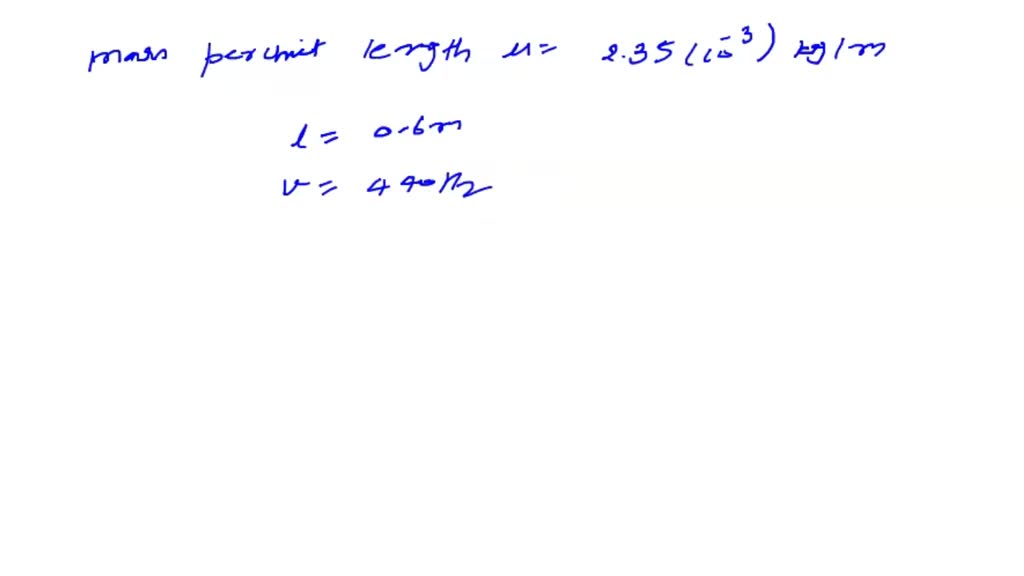 mass per unit length μ = 2.35 (10^-3) kg/m
l = 0.6m
ν = 440 Hz